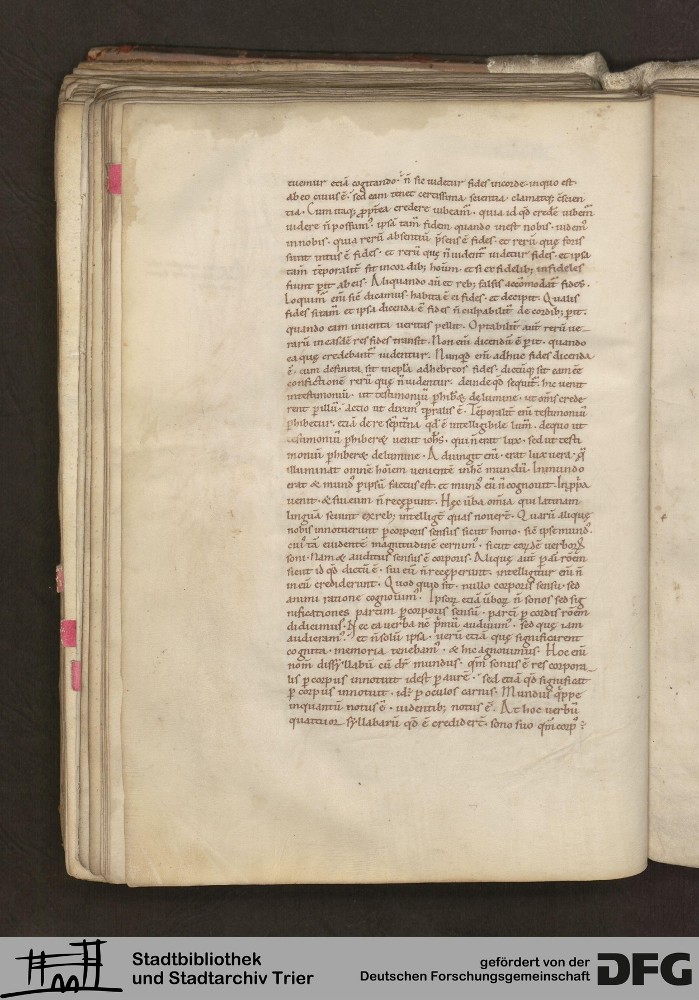 tuemur etiā cogitando· n̄ sic uidetur fides in corde· in quo est·
ab eo cuius ē· sed eam tenet certissima scientia· clamatq; c̄scien
tia· Cum itaq; ꝓpt̄ea credere iubeam̄· quia id qd̄ credē iubem̄
uidere n̄ possum⁹· ipsā tam̄ fidem quando inest nobis· uidem⁹
in nobis· quia rerū absentiū p̄sens ē fides· et rerū quę foris
sunt intus ē fides· et rerū quę n̄ uident̄ uidetur fides· et ipsa
tam̄ tēporalit̄ fit in cordib; hoīum· et si ex fidelib; infideles
fiunt ꝑit ab eis· Aliquando aūt et reb; falsis accōmodat̄ fides·
Loquim̄ enī sic ut dicamus· habita ē ei fides· et decepit· Qualis
fides si tam̄ et ipsa dicenda ē fides n̄ culpabilit̄ de cordib; ꝑit·
quando eam inuenta ueritas pellit· Optabilit̄ aut̄ rerū ue
rarū in easdē res fides transit· Non enī dicendū ē ꝑit· quando
ea quę credebant̄ uidentur· Nunqd̄ enī adhuc fides dicenda
ē· cum definita sit in epl̄a ad hebreos fides· dictūq; sit eam ēe
conuictionē rerū quę n̄ uidentur· deinde qd̄ sequit̄· hic uenit
in testimoniū· ut testimoniū ꝑhiberet de lumine· ut om̄s crede
rent ꝑ illū· actio ut diximus tp̄ralis ē· Tēporalit̄ enī testimoniū
ꝑhibetur· etiā de re sēpit̄na qd̄ ē intelligibile lum̄· de quo ut
testimoniū ꝑhiberet uenit ioh̄s· qui n̄ erat lux· sed ut testi
moniū ꝑhiberet de lumine· Adiungit enī· erat lux uera· q̄
illuminat omnē hoīem uenientē in hc̄ mundū· In mundo
erat & mund⁹ ꝑ ipsū factus est· et mund⁹ eū n̄ cognouit· In ꝓpa
uenit· & sui eum n̄ receperunt· Hęc ūba om̄ia qui latinam
linguā sciunt ex reb; intelligt̄ quas nouert̄· Quarū aliquę
nobis innotuerunt ꝑ corporis sensus sicut homo· sic̄ ipse mund⁹·
cui⁹ tā euidentē magnitudinē cernim⁹· sicut eorūdē uerborū
soni· Nam & auditus sensus ē corporis· Aliquę aut̄ ꝑ ai rōem
sicut id qd̄ dictū ē· sui eū n̄ receperunt· intelligitur enī n̄
in eū crediderunt· Quod quid sit· nullo corporis sensu· sed
animi ratione cognouim⁹· Ipsor̄ etiā ūbor̄ n̄ sonos sed sig
nificationes partim ꝑ corporis sensū· partī ꝑ cordis rōem
didicimus· Nec ea uerba nc̄ primū audiuim⁹· sed quę iam
audieram⁹· et n̄ solū ipsa· uerū etiā quę significarent
cognita· memoria tenebam⁹· & hic agnouimus· Hoc enī
nom̄ dissyllabū cū dr̄ mundus· qm̄ sonus ē res corpora
lis ꝑ corpus innotuit idest ꝑ aurē· sed etiā qd̄ significat
ꝑ corpus innotuit· idē ꝑ oculos carnis· Mundus q̄ppe
in quantū notus ē· uidentib; notus ē· At hoc uerbū
quattuor syllabarū qd̄ ē credidert̄· sono suo qm̄ corp⁹
Stadtbibliothek
und Stadtarchiv Trier
gefördert von der
Deutschen Forschungsgemeinschaft
DFG